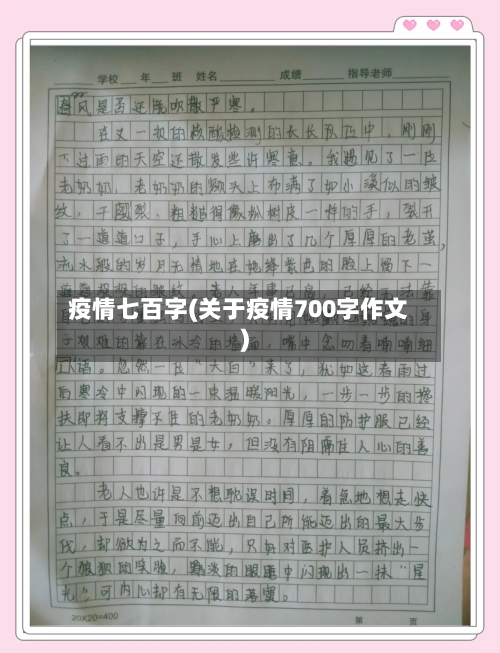 学校 年 班 姓名 成绩 指导老师
春风是否还能吹散严寒。
在又一次的核酸检测的长长队伍中，刚刚
下过雨的天空还散发些许寒意。我遇见了一位
老奶奶，老奶奶的额头上布满了如小溪似的皱
纹，干裂、粗糙得像松树皮一样的手，裂开
了一道道口子，手心上磨出了几个厚厚的老茧，
流水般的岁月无情地在她绛紫色的脸上留下一
疫情七百字(关于疫情700字作文
)
子艰难的靠在冰冷的墙面，嘴中念叨着喃喃细
语。忽然一位“大白”来了，犹如这春雨过
后寒冷中闪现的一束温暖阳光，一步一步的搀
扶即将支撑不住的老奶奶。厚厚的防护服已经
让人看不出是男是女，但没有阻隔住人心的善
良。
老人也许是不想耽误时间，着急地想走快
点，于是尽量向前迈出自己所能迈出的最大步
伐，却欲为之而不能，只好对医护人员挤出一
个狼狈的笑脸，黯淡的眼里中闪现出一抹“星
光”可内心却有无限的落寞。
20X20=400 第 页